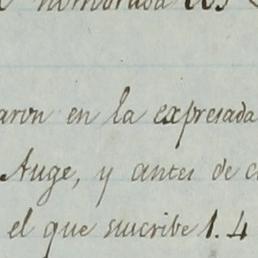 nombrada los
aron en la expresada
Auge, y antes de c
el que suscribe 1.4